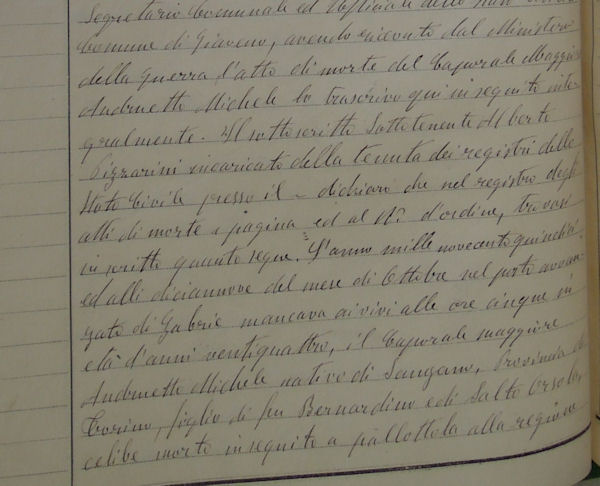 Segretario Comunale ed Ufficiale dello Stato
Comune di Giaveno, avendo ricevuto dal Ministero
della Guerra l'atto di morte del Caporale Maggiore
Andrnetto Michele lo trascrivo qui in seguito inte-
gralmente. Il sottoscritto Sottotenente Alberto
Pizzarini incaricato della tenuta dei registri dello
Stato Civile presso il - dichiaro che nel registro degli
atti di morte a pagina ed al No d'ordine, trovasi
inscritto quanto segue. "L'anno mille novecento quindici
ed alli diciannove del mese di Ottobre nel posto avan-
zato di Gabrie mancava ai vivi alle ore cinque in
età d'anni ventiquattro, il Caporale maggiore
Andrnetto Michele nativo di Sangano, Provincia di
Torino, figlio di fu Bernardino e di Salto Orsola,
celibe morto in seguito a pallottola alla regione